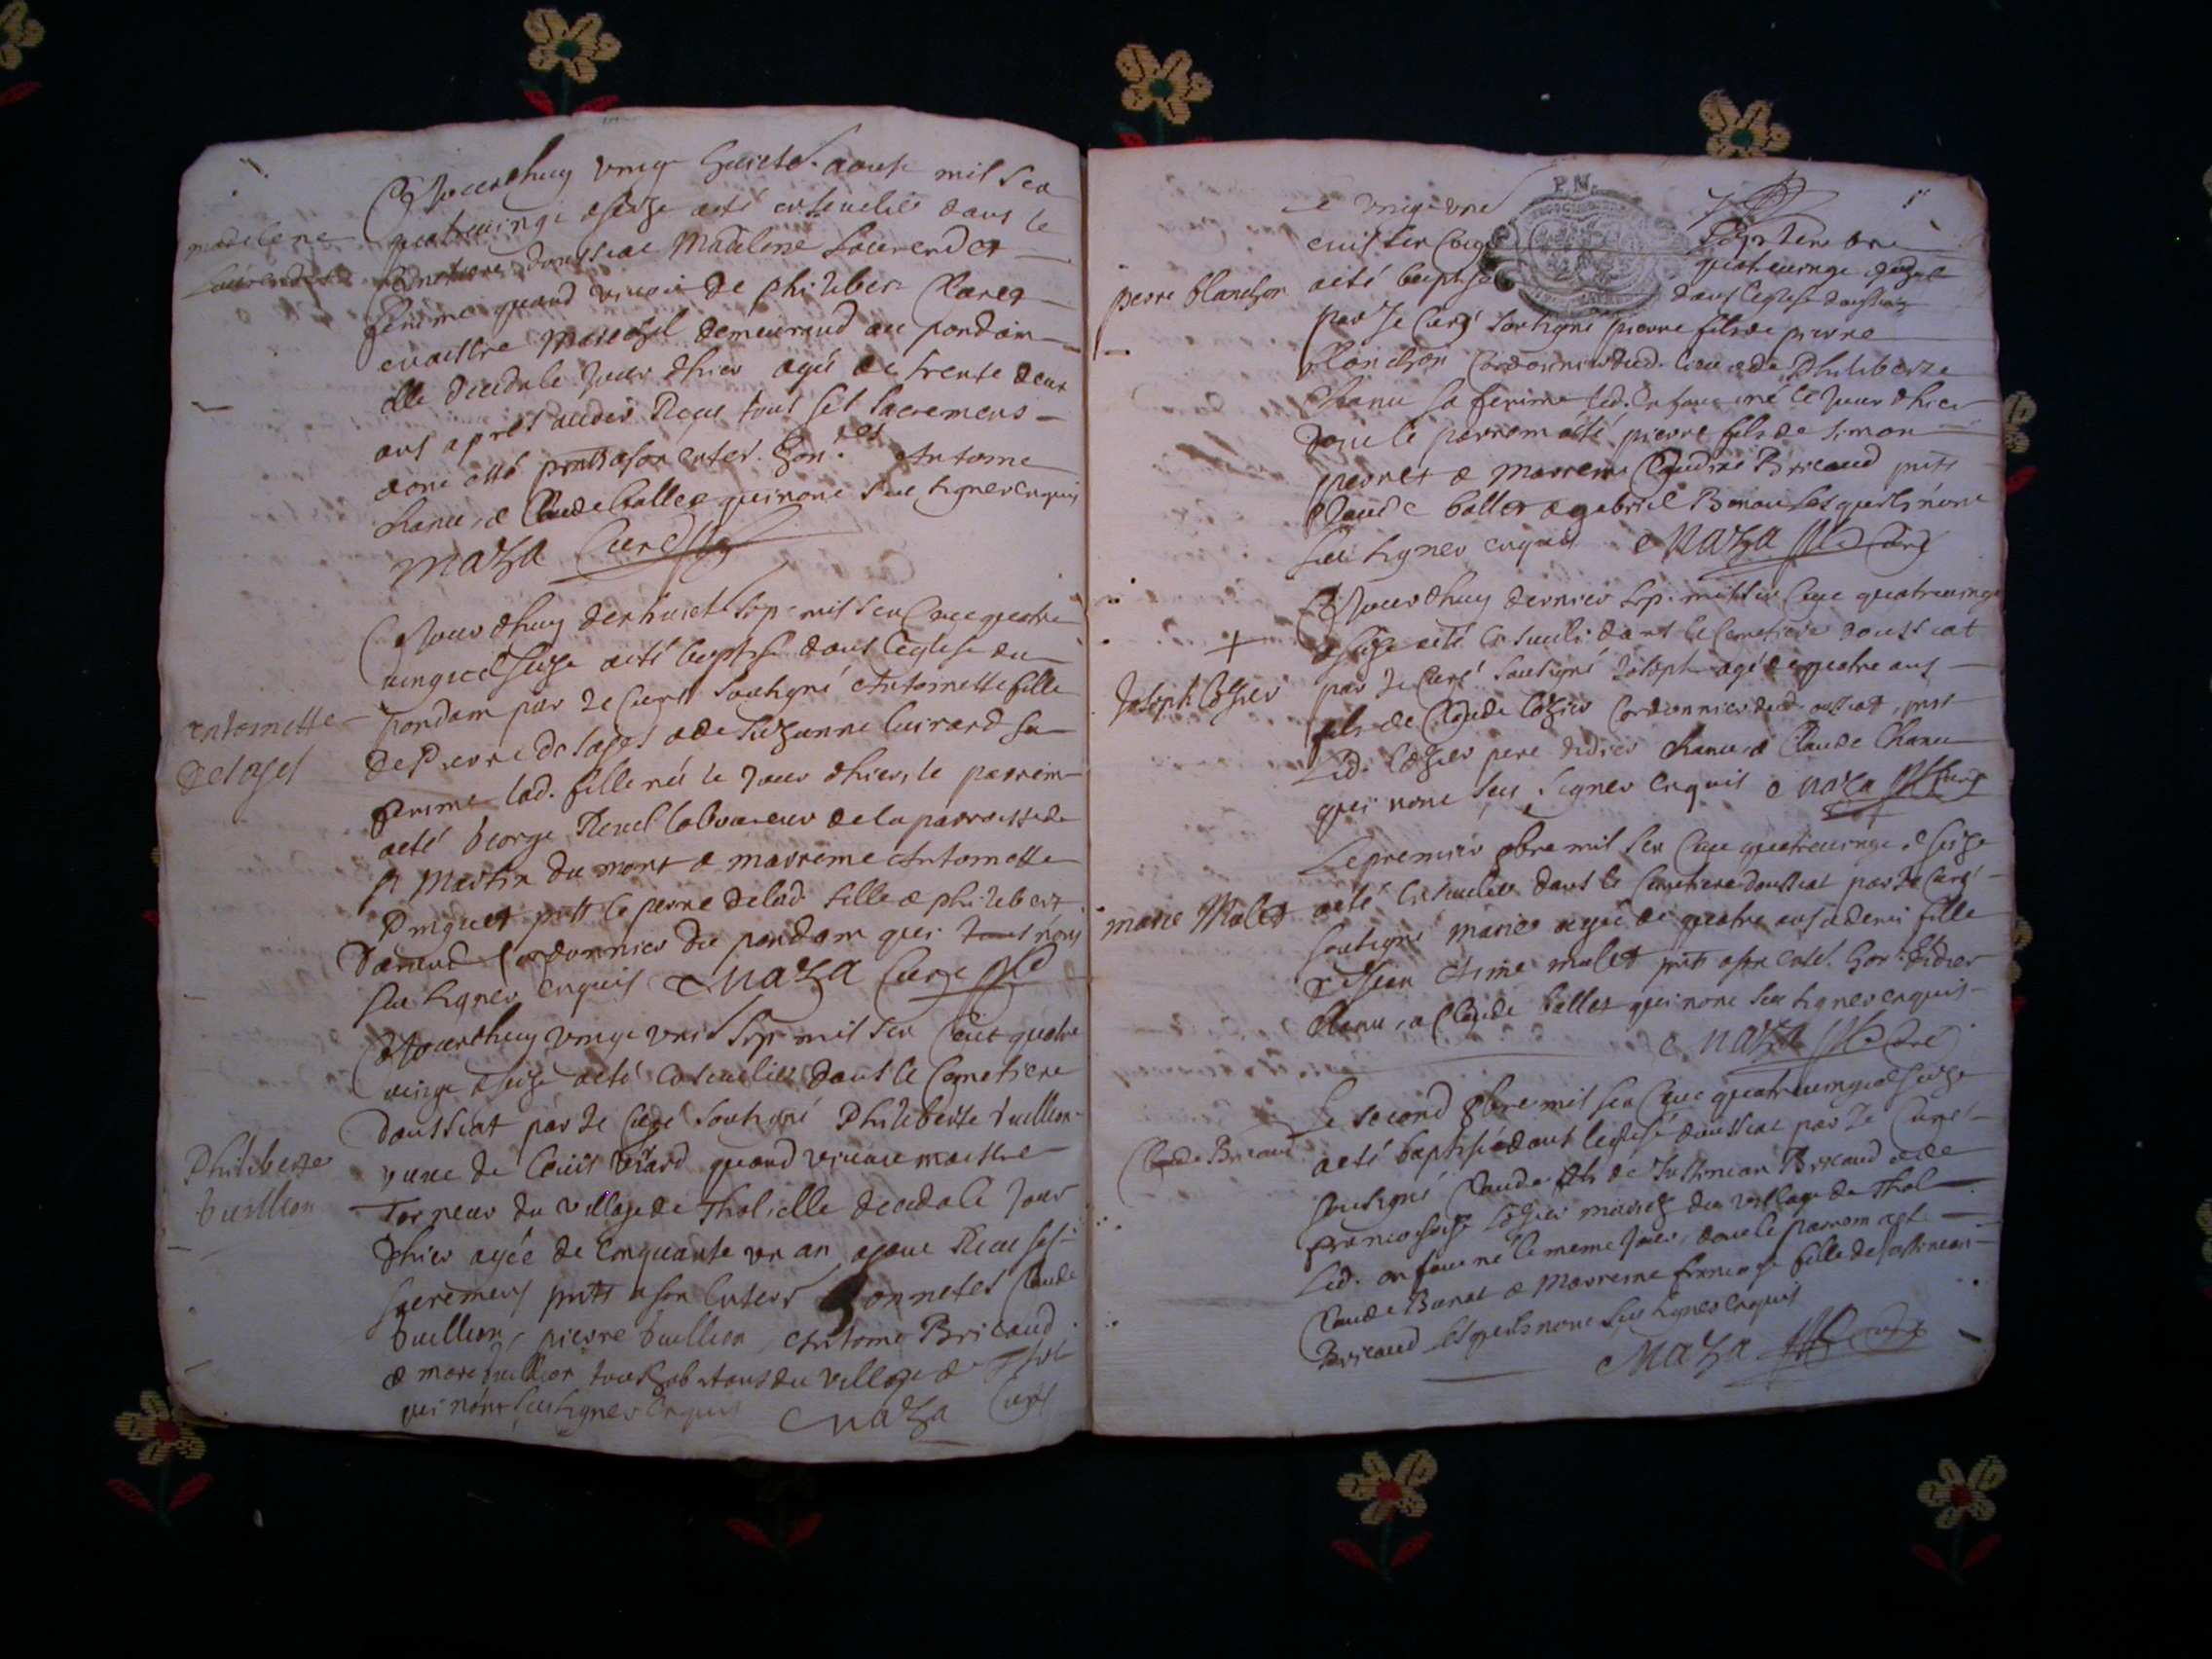 madelene
Aujourdhuy vingt huict aoust mil six
quatrevingt & seize a eté ensevelie dans le
Cemetiere doussiat Madelene
femme quand vivoit de philibert
maistre demeurand au pondain
elle deceda le jour dhier agée de trente deux
ans apres avoir Receu tous ses sacremens
ont esté pnts a son enter. hon. Antoine
chanu, & Claude ballet qui nont sceu signer enquis
Maza Curé
Antoinette
Delages
Aujourdhuy dix huict sep. mil six Cent quatre
vingt et seize a eté baptisé dans leglise du
pondain par Je Curé soubsigné Antoinette fille
De Pierre De lages & de Suzanne Guirard sa
femme lad. fille née le jour dhier, le parrein
a eté George laboureur de la parroisse de
st Martin du mont & marreine Antoinette
pnt le pere de lad. fille & philibert
Cordonnier du pondain qui nont
sceu signer enquis Maza Curé
Philiberte
Vuillion
Aujourdhuy vingt un sep. mil six Cent quatre
vingt & seize a eté ensevelie dans le Cemetiere
Doussiat par Je Curé soubsigné Philiberte Vuillion
veuve de Louis quand vivoit maistre
Torneur du village de Thol elle deceda le jour
dhier agée de Cinquante un an ayant Receu ses
sacremens pnts a son enterr honnetes Claude
Vuillion, pierre Vuillion, Antoine Bricaud
& marc Vuillion tous habitans du village de Thol
qui nont sceu signer enquis Maza Curé
P. M.
Le vingt une Septembre
mil six Cent quatrevingt & seize
pierre blanchon
a eté baptisé dans leglise doussiat
par Je Curé soubsigné pierre fils de pierre
Blanchon Cordonnier dud. lieu & de Philiberte
Chanu sa femme led. enfant né le jour dhier
dont le parrein a eté pierre fils de simon
perret & marreine Claudine Bricaud pnts
Claude ballet & gabriel lesquels nont
sceu signer enquis Maza Curé
Joseph Cozier
Aujourdhuy dernier sep. mil six Cent quatrevingt
& seize a eté ensevli dans le Cemetiere doussiat
par Je Curé soubsigné Joseph agé de quatre ans
fils de Claude Cozier Cordonnier dud. oussiat, pnt
Led. Cozier pere didier chanu & Claude Chanu
qui nont sceu signer enquis Maza Curé
marie Malet
Le premier 8bre mil six Cent quatrevingt & seize
a eté ensevelie dans le Cemetiere doussiat par Je Curé
soubsigné marie agée de quatre ans & demi fille
de Jean Aimé malet pnts a son ente. hon. didier
Chanu, & Claude ballet qui nont sceu signer enquis
Maza Curé
Claude Bricaud
Le second 8bre mil six Cent quatrevingt & seize
a eté baptisé dans leglise doussiat par Je Curé
soubsigné Claude fils de Bricaud & de
francoise Cozier mariez du village de Thol
Led. enfant né le meme jour, dont le parrein est
Claude & Marreine francoise fille de
Bricaud lesquels nont sceu signer enquis
Maza Curé